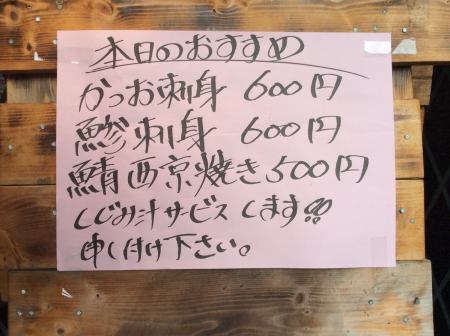 本日のおすすめ
かつお刺身 600円
鯵刺身 600円
鯖西京焼き500円
しじみ汁サービスします!!
申し付け下さい。